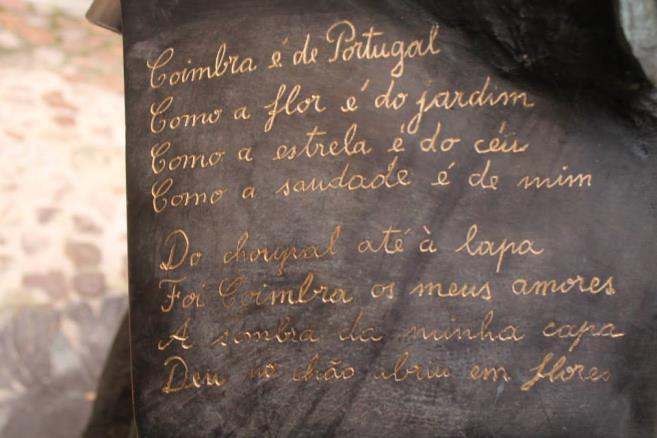 Coimbra é de Portugal
Como a flor é do jardim
Como a estrela é do céu
Como a saudade é de mim
Do choupal até à lapa
Foi Coimbra os meus amores
A sombra da minha capa
Deu no chão abriu em flores